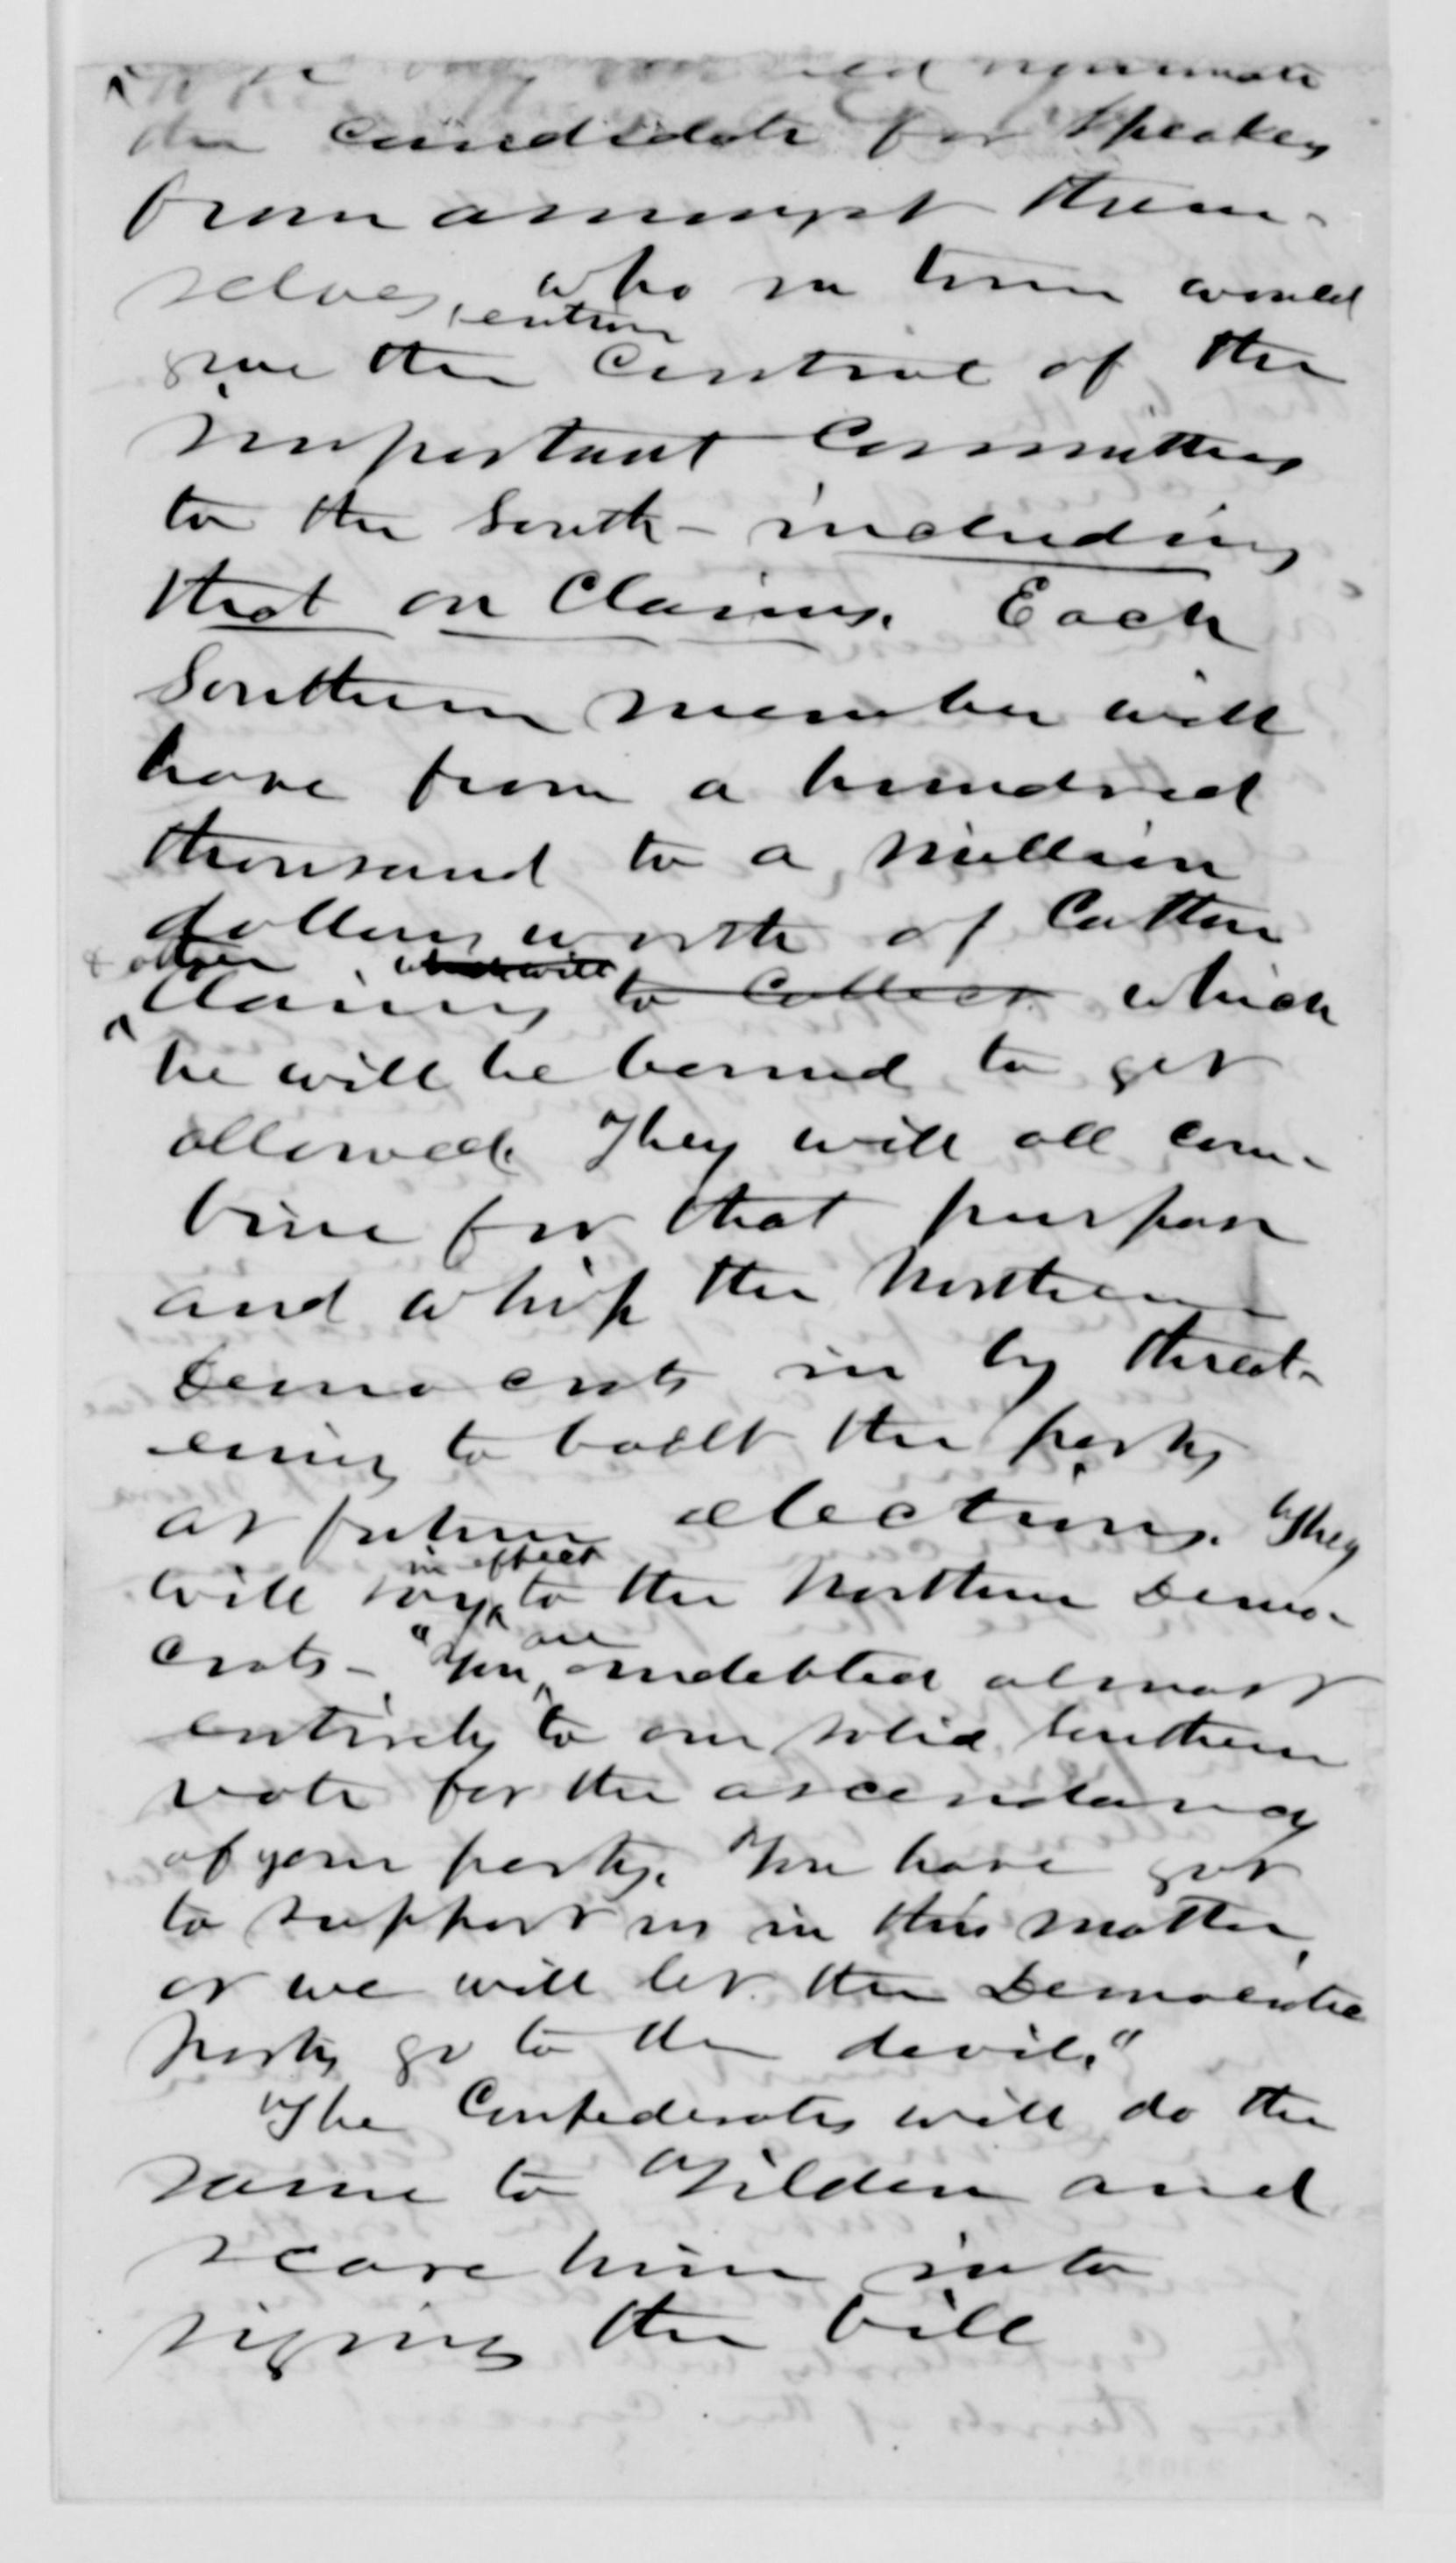 nominate
the candidate for Speaker
from amongst them-
selves, who in turn would
entire
give the control of the
important Committees
to the South - including
that on Claims. Each
Southern member will
have from a hundred
thousand to a million
dollars worth of Cotton
& other which will
Claims to collect which
he will be bound to get
allowed. They will all com-
bine for that purpose
and whip the Northern
Democrats in by threat-
ening to bolt the party
at future elections. They
in effect
will say to the Northern Demo-
are
crats - "You indebted almost
entirely to our solid Southern
vote for the ascendancy
of your party. You have got
to support us in this matter,
or we will let the Democratic
party go to the devil."
The Confederates will do the
same to Tilden and
scare him into
signing the bill